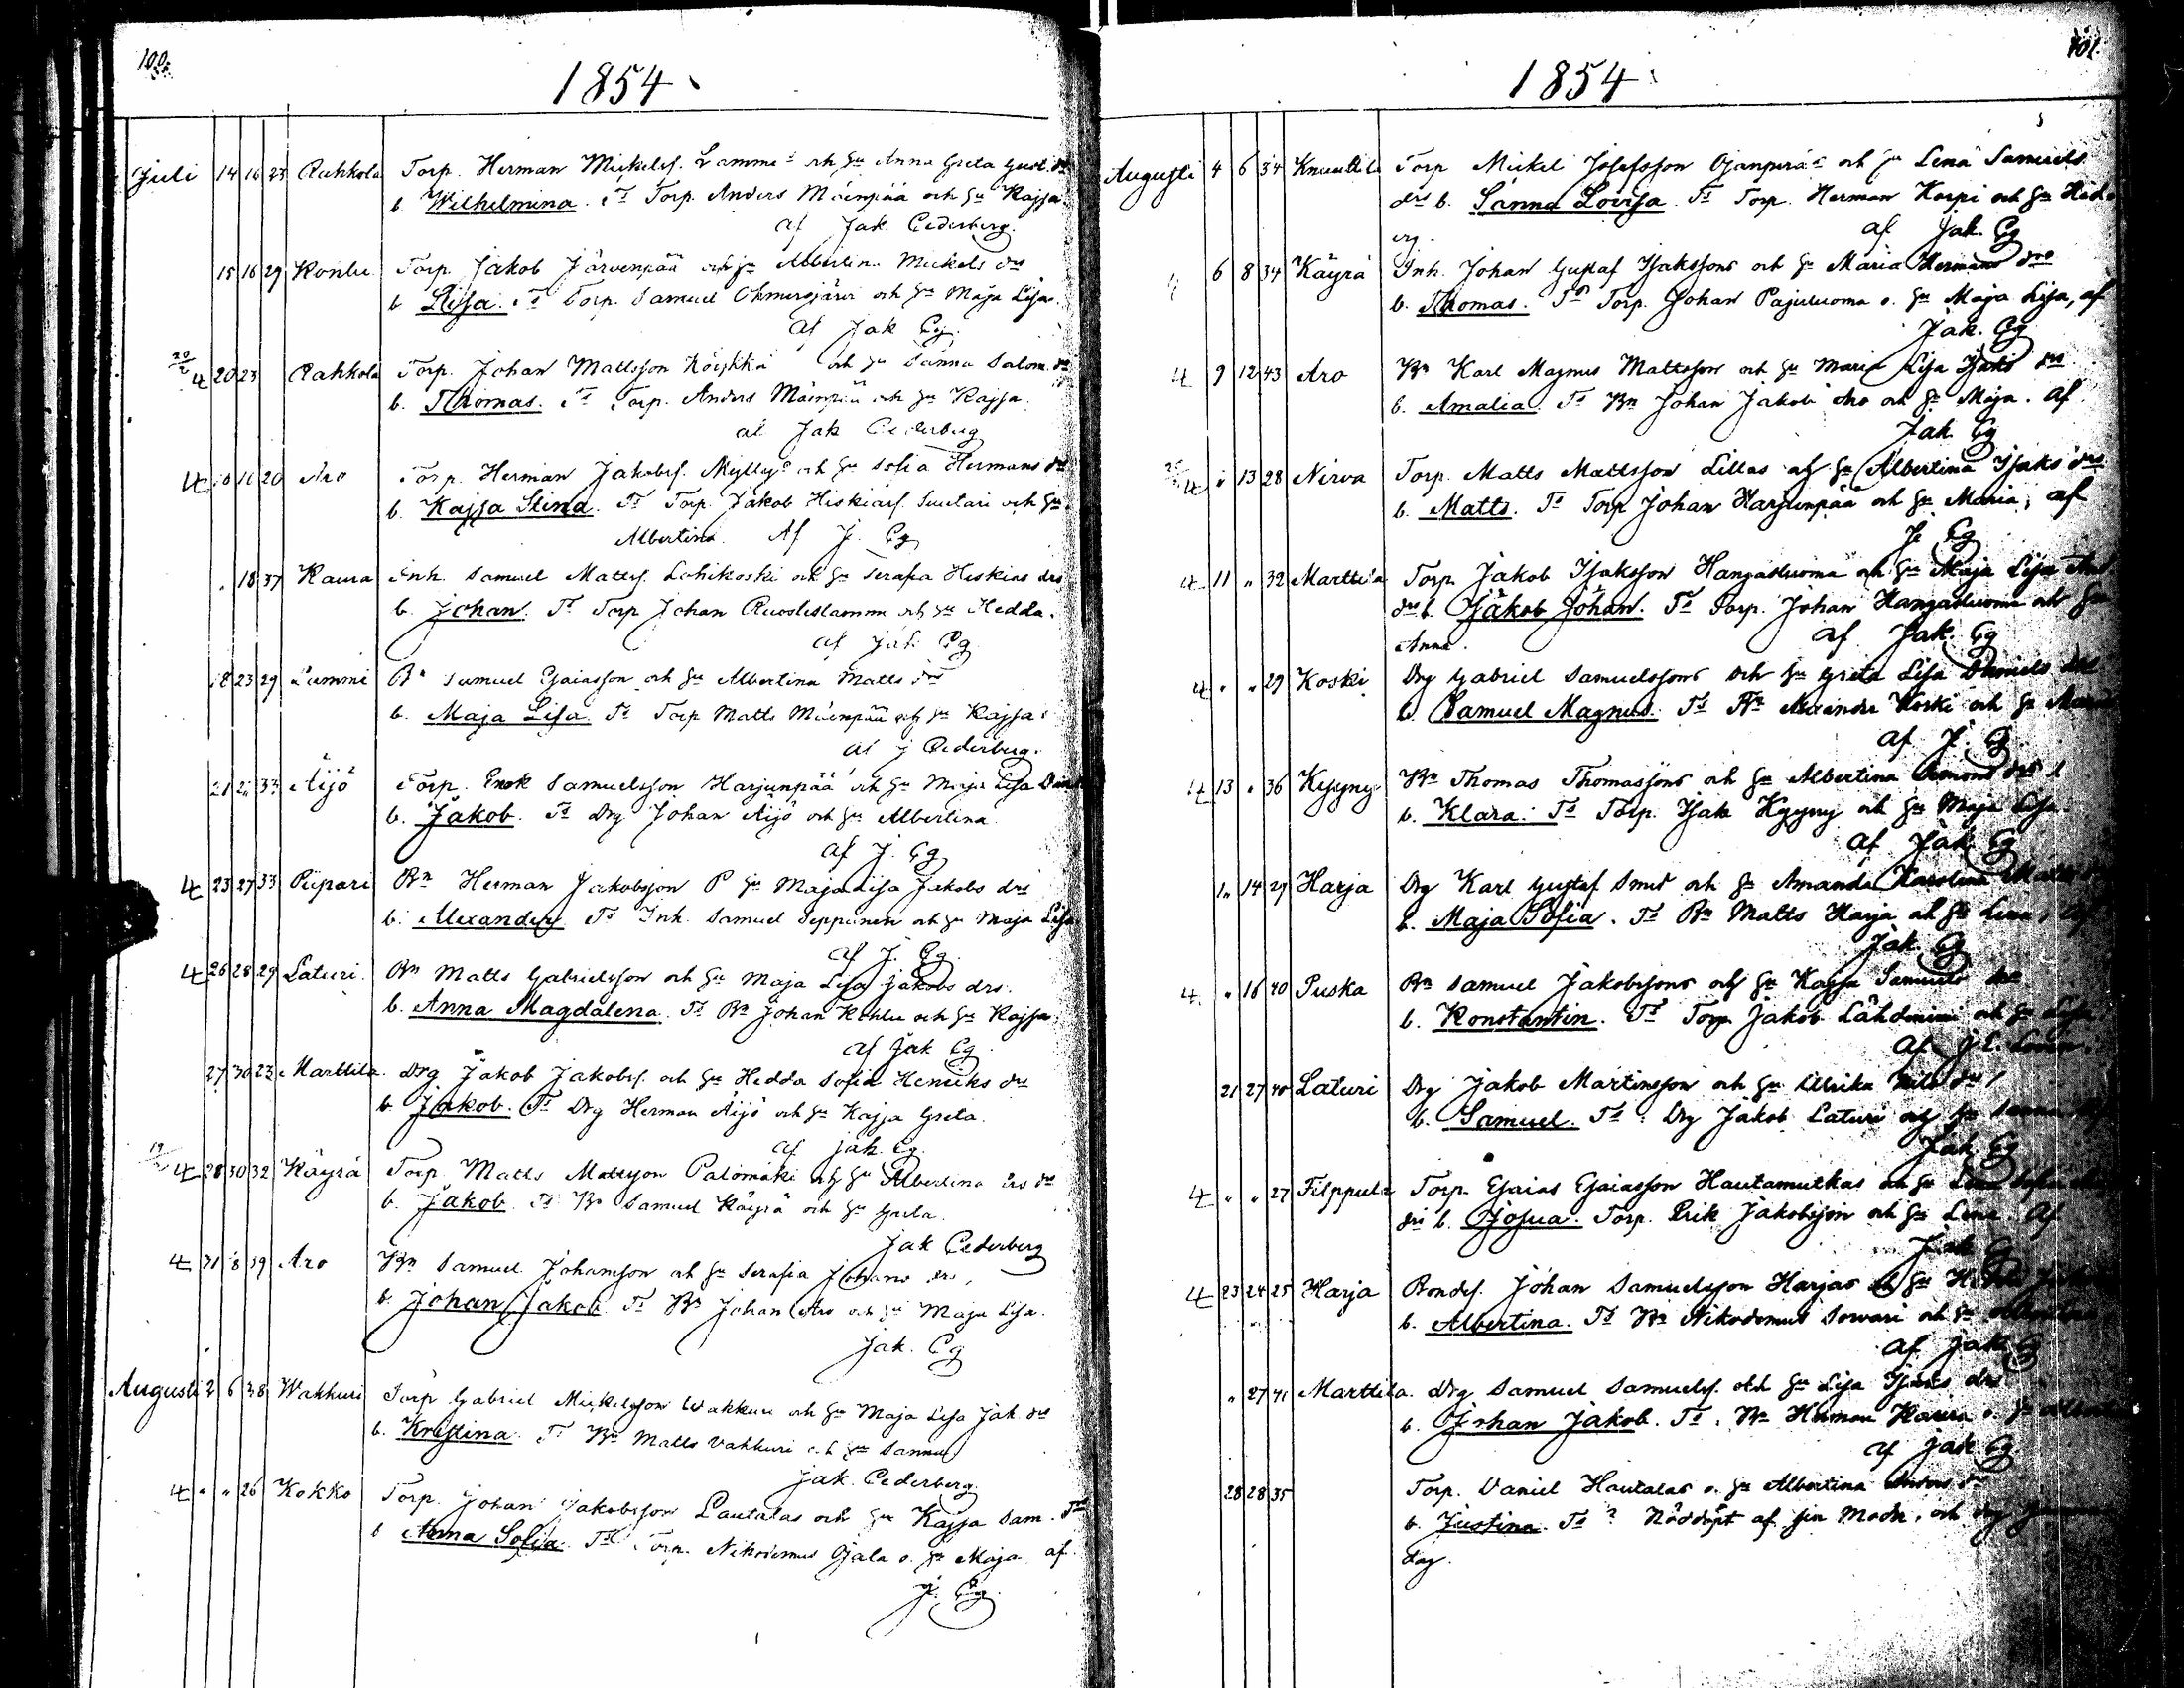 100.
1854
Juli 14 16 23 Rahkola Torp. Herman Mickelsf. Lammi och hu Anna Greta Gust. dr
b. Wilhelmina. Ts Torp. Anders Mäenpää och hu Kajsa.
af Jak. Cederberg.
15 16 29 Konlu Torp. Jakob Järvenpää och hu Albertina Mickels drs
b. Lisa. Ts Torp. Samuel och hu Maja Lisa.
af Jak Cg.
4 20 23 Rahkola Torp. Johan Mattsson och hu Sanna Salom. dr
b. Thomas. Ts Torp. Anders Mäenpää och hu Kajsa.
af Jak Cederberg
4 10 16 20 Aro Torp. Herman Jakobsf. Mylly och hu Sofia Hermans dr
b. Kajsa Stina. Ts Torp. Jakob Hiskiasf. Suutari och hu
Albertina. Af J. Cg
" 18 37 Kaura Inh. Samuel Mattsf. Lohikoski och hu Serafia Hiskias drs
b. Johan. Ts Torp Johan Ruostislammi och hu Hedda.
af Jak Cg
18 23 29 Lammi Bn Samuel Esaiasson och hu Albertina Matts drs
b. Maja Lisa. Ts Torp Matts Mäenpää och hu Kajsa.
af J Cederberg.
21 33 Äijö Torp. Enok Samuelsson Harjunpää och hu Maja Lisa
b. Jakob. Ts Drg Johan Äijö och hu Albertina.
af J. Cg
4 23 27 33 Piipari Bn Herman Jakobsson P hu Maja Lisa Jakobs drs
b. Alexander. Ts Inh. Samuel Seppänen och hu Maja Lisa
af J. Cg.
4 26 28 29 Laturi. Bn Matts Gabrielsson och hu Maja Lisa Jakobs drs.
b. Anna Magdalena. Ts Bn Johan och hu Kajsa.
af Jak Cg.
27 30 23 Marttila. Drg Jakob Jakobsf. och hu Hedda Sofia Henriks drs
b. Jakob. Ts Drg Herman Äijö och hu Kajsa Greta.
af Jak. Cg.
4 28 30 32 Käyrä Torp. Matts Mattsson Palomäki och hu Albertina drs
b. Jakob. Ts Bn Samuel Käyrä och hu Greta.
Jak Cederberg
4 31 39 Aro Bn Samuel Johansson och hu Serafia Johans drs,
b. Johan Jakob. Ts Bn Johan Aro och hu Maja Lisa.
Jak. Cg
Augusti 2 6 38 Wakkuri Torp Gabriel Mickelsson Wakkuri och hu Maja Lisa Jak. drs
b. Kristina. Ts Bn Matts Vakkuri och hu Sanna
Jak. Cederberg.
4 " " 26 Kokko Torp. Johan Jakobsson Lautalas och hu Kajsa Sam. dr
b Anna Sofia. Ts Torp. Nikodemus Ojala o. hu Maja. af.
J. Cg
101.
1854
Augusti 4 6 34 Knuuttila Torp Mickel Josefsson Ojanperä och hu Lena Samuels
drs b. Sanna Lovisa. Ts Torp. Herman Korpi och hu Hed-
vig. af Jak. Cg
6 8 34 Käyrä Inh. Johan Gustaf Isakssons och hu Maria Hermans drs
b. Thomas. Ts Torp. Johan Pajuluoma o. hu Maja Lisa, af
Jak. Cg
4 9 12 43 Aro Bn Karl Magnus Mattsson och hu Maria Lisa Isaks drs
b. Amalia. Ts Bn Johan Jakob Aro och hu Maja. af
Jak. Cg
4 " 13 28 Nirva Torp. Matts Mattsson Lillas och hu Albertina Isaks drs
b. Matts. Ts Torp Johan Harjunpää och hu Maria, af
J. Cg
4 11 " 32 Marttila Torp Jakob Isaksson Hangasluoma och hu Maja Lisa
drs b. Jakob Johan. Ts Torp. Johan Hangasluoma och hu
Anna. af Jak. Cg
4 " " 29 Koski Drg Gabriel Samuelssons och hu Greta Lisa Daniels drs
b. Samuel Magnus. Ts Bn Alexander Koski och hu
af J. Cg
4 13 " 36 Kyyny Bn Thomas Thomassons och hu Albertina Simons drs
b. Klara. Ts Torp. Isak Kyyny och hu Maja Lisa.
af Jak. Cg
14 29 Harja Drg Karl Gustaf Smed och hu Amanda Karolina
b. Maja Sofia. Ts Bn Matts Harja och hu Lena, af
Jak. Cg
4. " 16 40 Puska Bn Samuel Jakobssons och hu Kajsa Samuels drs
b. Konstantin. Ts Torp Jakob Lähdeniemi och hu Lisa
af
21 27 40 Laturi Drg Jakob Martinsson och hu Ulrika drs
b. Samuel. Ts Drg Jakob Laturi och hu Sanna
Jak. Cg
4 " " 27 Filppula Torp. Esaias Esaiasson Hautamutkas och hu
drs b. Josua. Torp. Erik Jakobsson och hu Lena. Af
Jak Cg
4 23 24 25 Harja Bondes. Johan Samuelsson Harjas och hu
b. Albertina. Ts Bn Nikodemus Sorvari och hu
af Jak Cg
" 27 41 Marttila. Drg Samuel Samuelsf. och hu Lisa Isaks drs
b. Johan Jakob. Ts. Bn Herman Kaura o. hu
af Jak Cg
28 28 35 Torp. Daniel Hautalas o. hu Albertina drs
b. Justina. Ts ? Nöddöpt af sin Moder, och
dag.